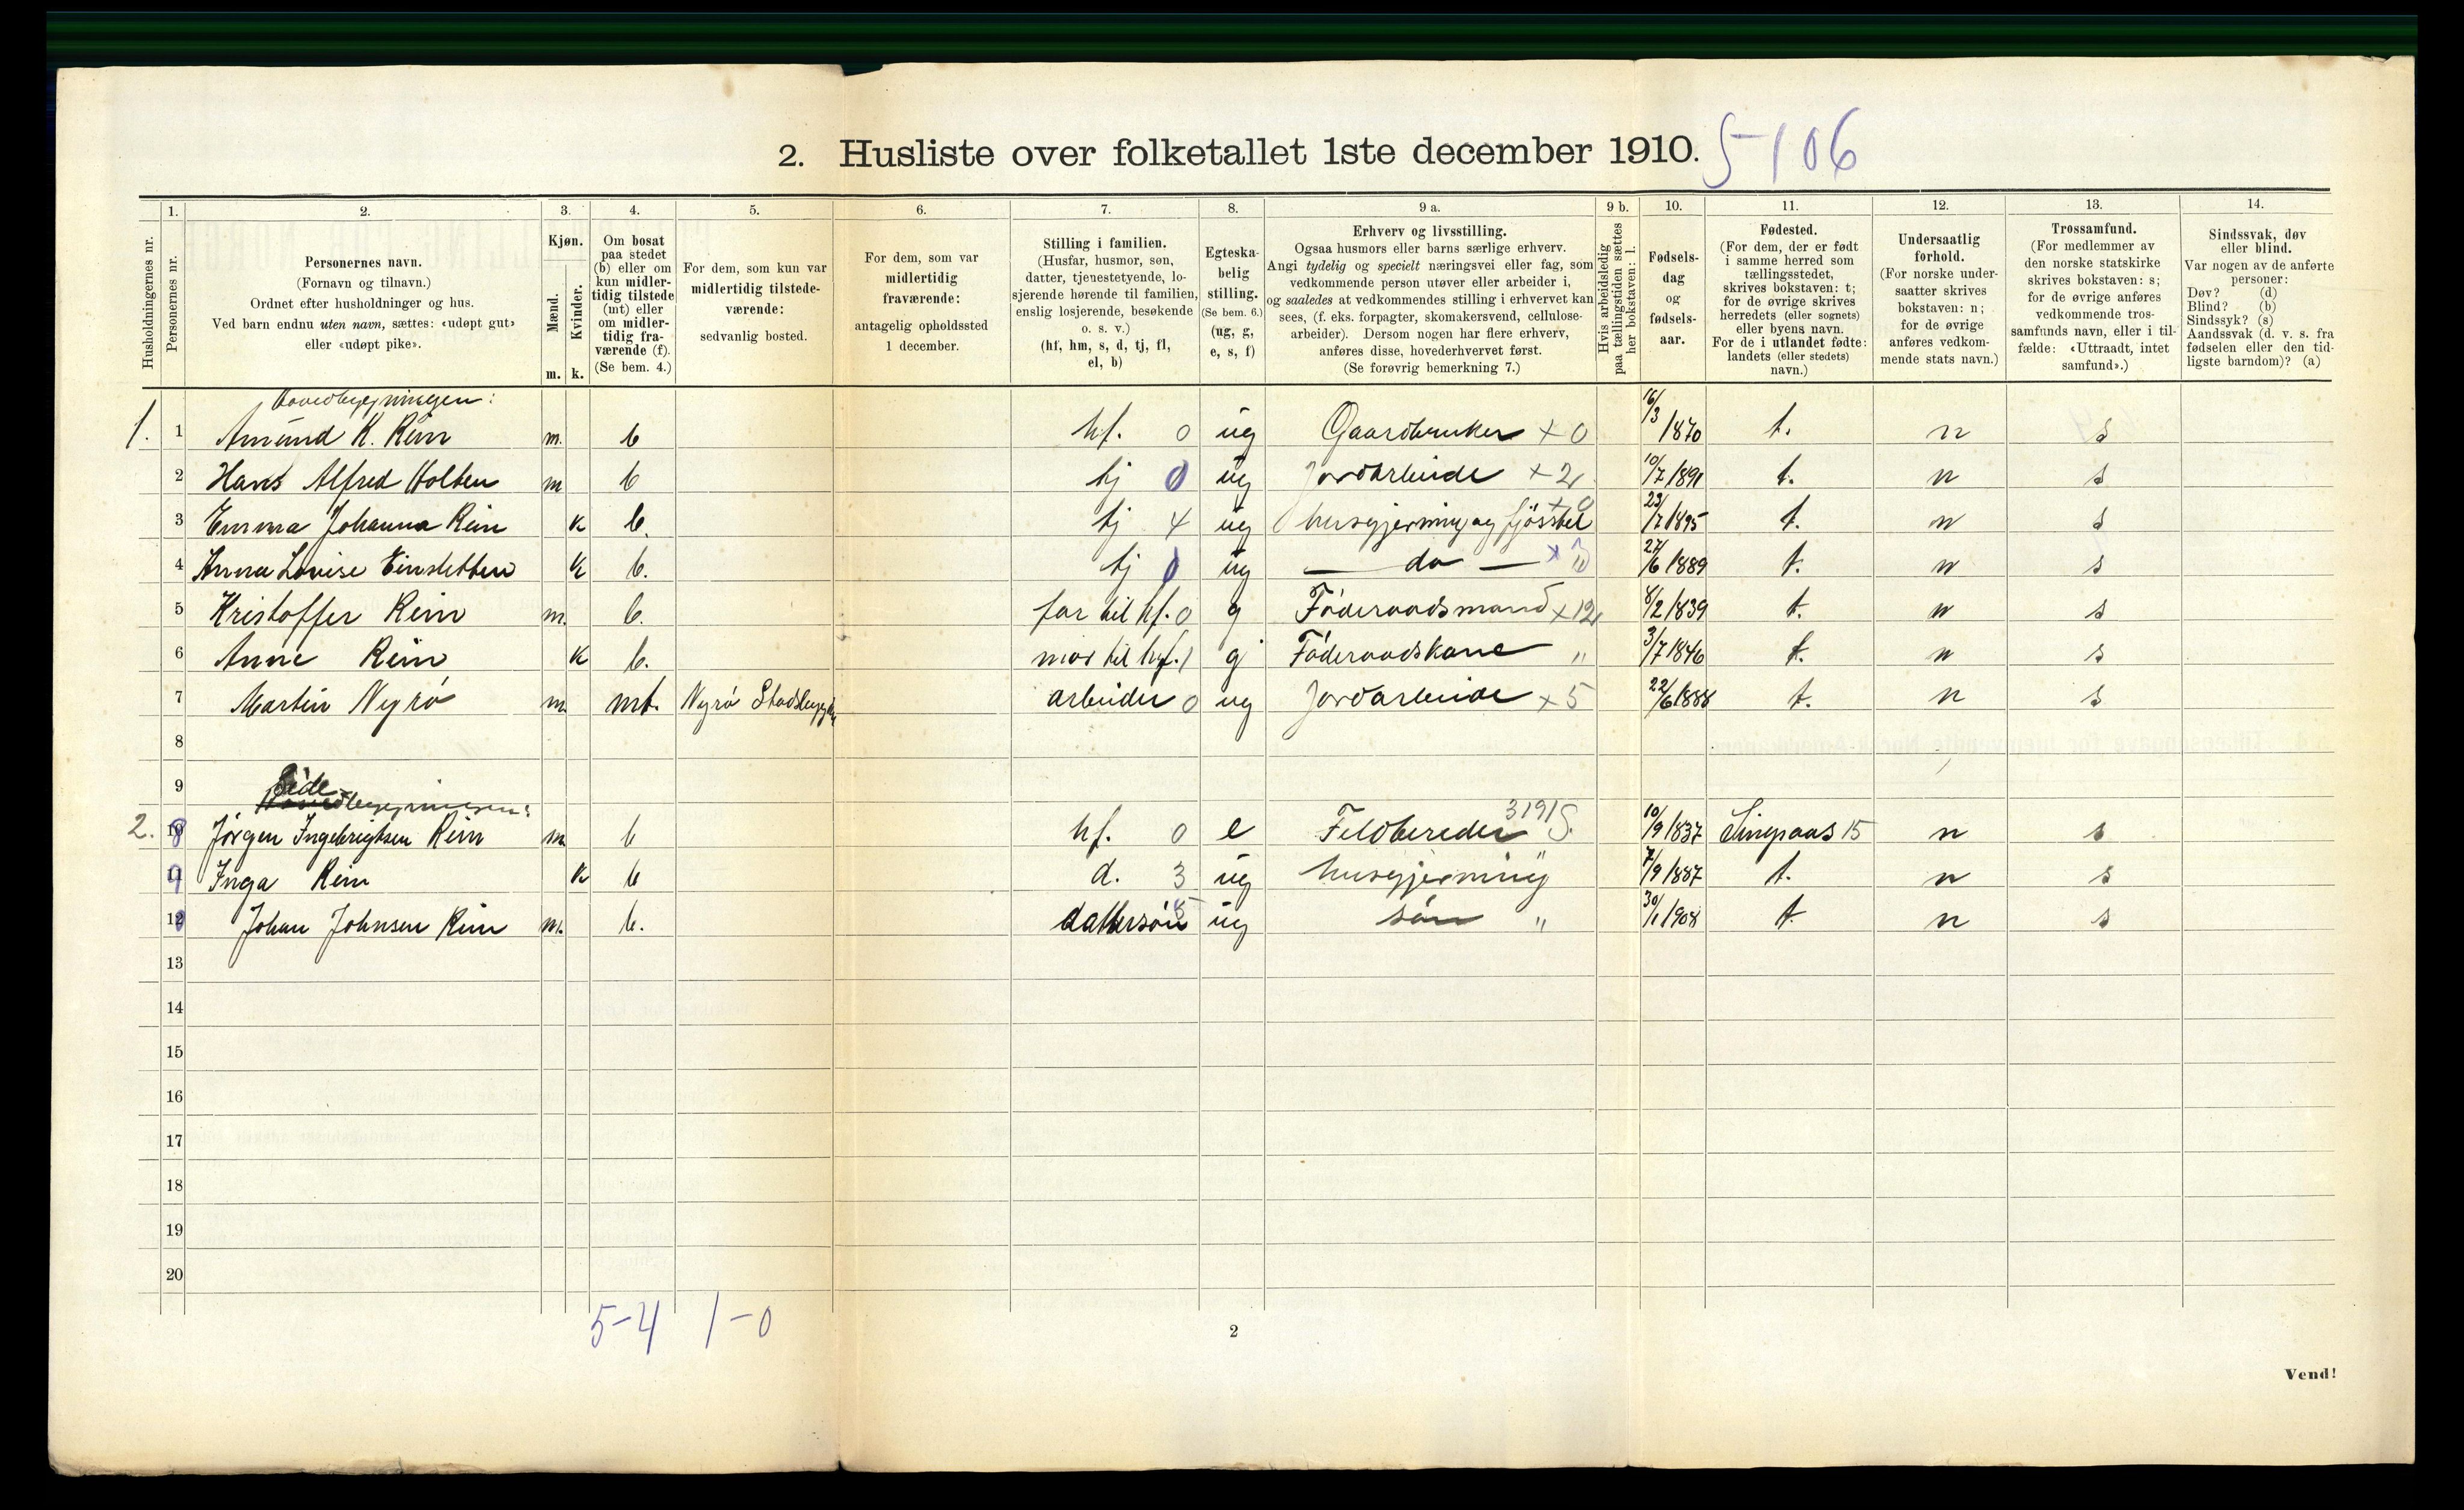 2. Husliste over folketallet 1ste december 1910. 5-106
Husholdningernes nr.
1.
Personernes nr.
2.
Personernes navn.
(Fornavn og tilnavn.)
Ordnet efter husholdninger og hus.
Ved barn endnu uten navn, sættes: «udøpt gut»
eller «udøpt pike».
3.
Kjøn.
Mænd. Kvinder.
m. k.
4.
Om bosat
paa stedet
(b) eller om
kun midler-
tidig tilstede
(mt) eller
om midler-
tidig fra-
værende (f).
(Se bem. 4.)
5.
For dem, som kun var
midlertidig tilstede-
værende:
sedvanlig bosted.
6.
For dem, som var
midlertidig
fraværende:
antagelig opholdssted
1 december.
7.
Stilling i familien.
(Husfar, husmor, søn,
datter, tjenestetyende, lo-
sjerende hørende til familien,
enslig losjerende, besøkende
o. s. v.)
(hf, hm, s, d, tj, fl,
el, b)
8.
Egteska-
belig
stilling.
(Se bem. 6.)
(ug, g,
e, s, f)
9 a.
Erhverv og livsstilling.
Ogsaa husmors eller barns særlige erhverv.
Angi tydelig og specielt næringsvei eller fag, som
vedkommende person utøver eller arbeider i,
og saaledes at vedkommendes stilling i erhvervet kan
sees, (f. eks. forpagter, skomakersvend, cellulose-
arbeider). Dersom nogen har flere erhverv,
anføres disse, hovederhvervet først.
(Se forøvrig bemerkning 7.)
9 b.
Hvis arbeidsledig
paa tællingstiden sættes
her bokstaven: l.
10.
Fødsels-
dag
og
fødsels-
aar.
11.
Fødested.
(For dem, der er født
i samme herred som
tællingsstedet,
skrives bokstaven: t;
for de øvrige skrives
herredets (eller sognets)
eller byens navn.
For de i utlandet fødte:
landets (eller stedets)
navn.)
12.
Undersaatlig
forhold.
(For norske under-
saatter skrives
bokstaven: n;
for de øvrige
anføres vedkom-
mende stats navn.)
13.
Trossamfund.
(For medlemmer av
den norske statskirke
skrives bokstaven: s;
for de øvrige anføres
vedkommende tros-
samfunds navn, eller i til-
fælde: «Uttraadt, intet
samfund».)
14.
Sindssvak, døv
eller blind.
Var nogen av de anførte
personer:
Døv? (d)
Blind? (b)
Sindssyk? (s)
Aandssvak (d. v. s. fra
fødselen eller den tid-
ligste barndom)? (a)
Hovedbygningen:
1. 1 Amund K. Rein m. b hf. 0 ug Gaardbruker x 0 16/3 1870 t. n s
2 Hans Alfred Holten m b tj 0 ug Jordarbeide x 2 10/7 1891 t. n s
3 Emma Johanna Rein k b. tj 4 ug husgjerning og fjösstel x 0 23/7 1895 t. n s
4 Anna Lovise Einsletten k b. tj 0 ug — do — x 27/6 1889 t. n s
5 Kristoffer Rein m. b. far til hf. 0 g Föderaadsmand x 12 8/2 1839 t. n s
6 Anne Rein k b. mor til hf. 1 g Föderaadskone " 3/7 1846 t. n s
7 Martin Nyrö m. mt. Nyrö Stadsbygden arbeider 0 ug Jordarbeide x 5 22/6 1888 t. n s
8
9 Side
Hovedbygningen:
2. 10 8 Jörgen Ingebrigtsen Rein m. b hf. 0 e Feldbereder 3191 S. 10/9 1837 Singsaas 15 n s
11 9 Inga Rein k b d. 3 ug husgjerning " 7/9 1887 t. n s
12 Johan Johnsen Rein m. b. dattersön 5 ug sön " 30/1 1908 t n s
13
14
15
16
17
18
19
20
5-4 1-0
2
Vend!